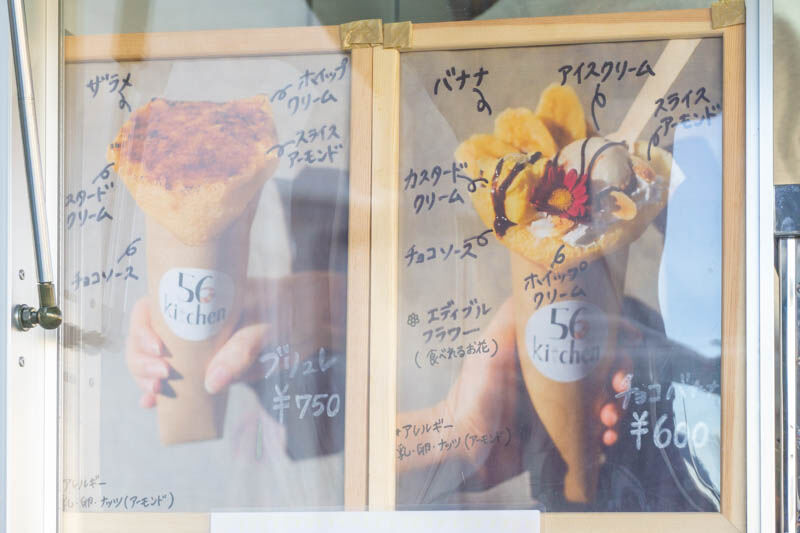 ザラメ
ホイップ
クリーム
スライス
アーモンド
スタード
クリーム
チョコソース
56
kitchen
ブリュレ
¥750
アレルギー
乳・卵・ナッツ(アーモンド)
バナナ
アイスクリーム
スライス
アーモンド
カスタード
クリーム
チョコソース
ホイップ
クリーム
エディブル
フラワー
(食べれるお花)
56
kitchen
チョコバナナ
¥600
*アレルギー
乳・卵・ナッツ(アーモンド)